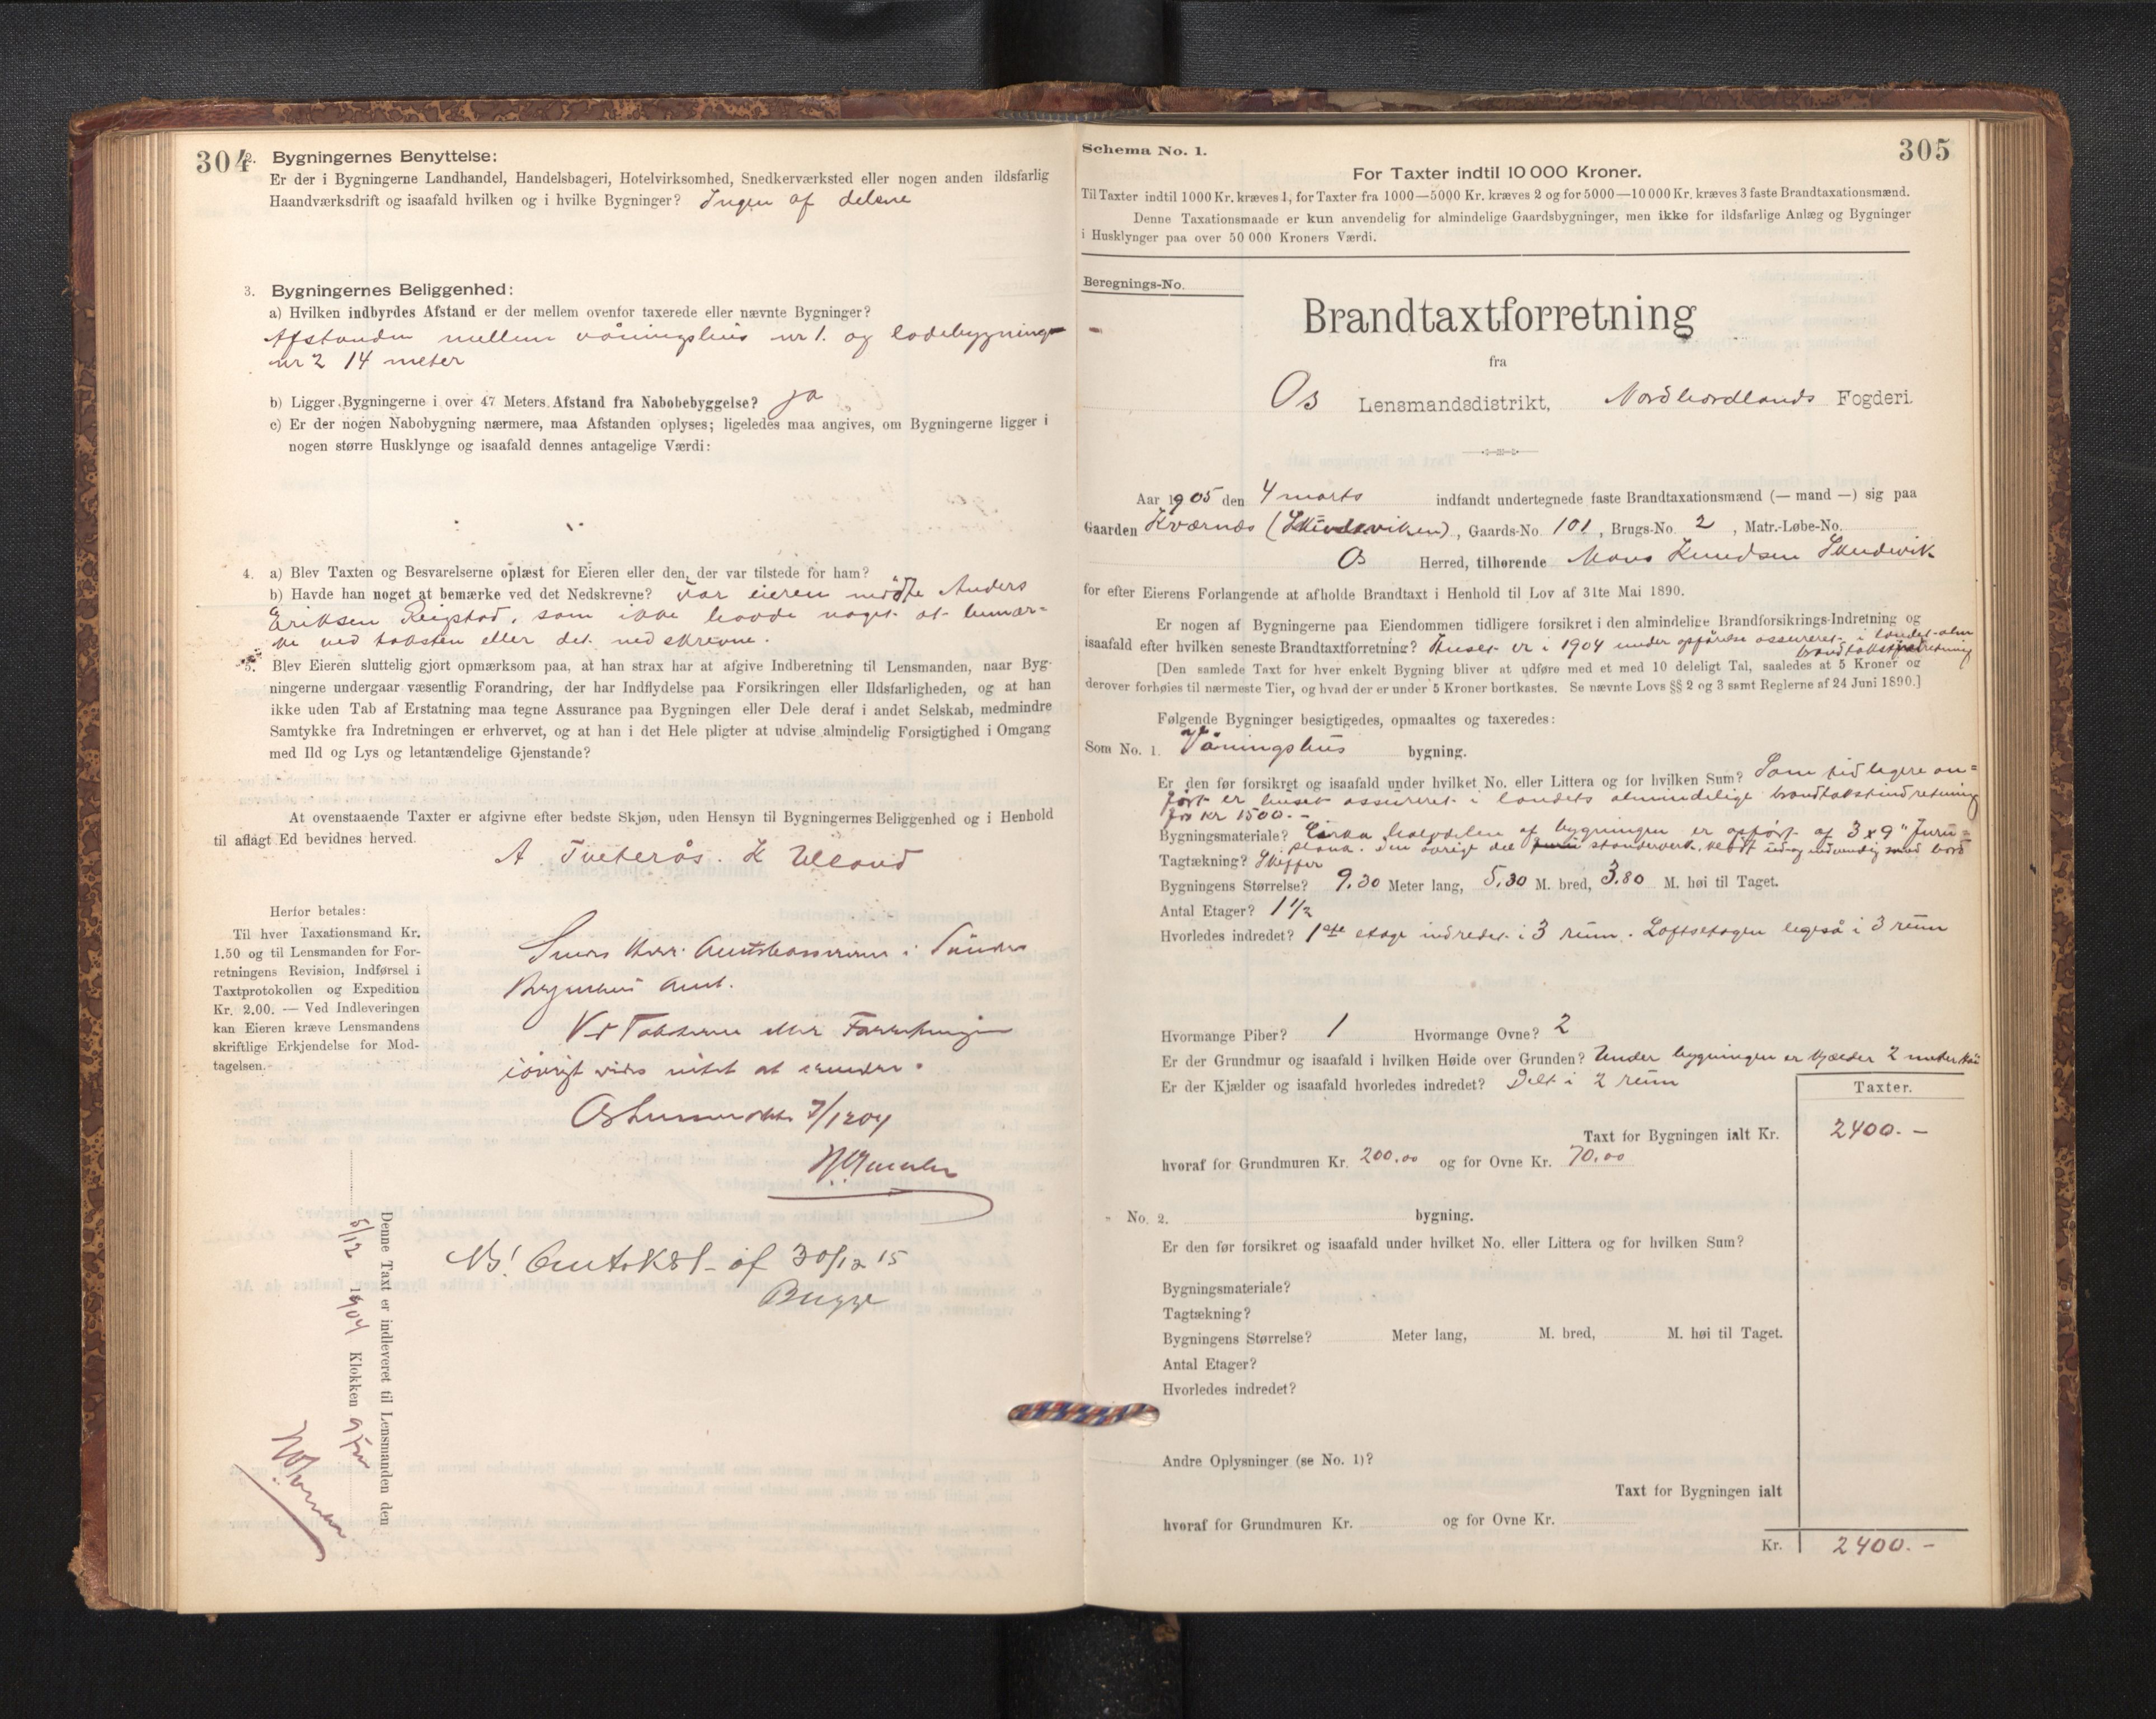 304
2. Bygningernes Benyttelse:
Er der i Bygningerne Landhandel, Handelsbageri, Hotelvirksomhed, Snedkerværksted eller nogen anden ildsfarlig
Haandværksdrift og isaafald hvilken og i hvilke Bygninger? Ingen af delene
3. Bygningernes Beliggenhed:
a) Hvilken indbyrdes Afstand er der mellem ovenfor taxerede eller nævnte Bygninger?
Afstanden mellem våningshus nr 1. og ladebygning
nr 2 14 meter
b) Ligger Bygningerne i over 47 Meters Afstand fra Nabobebyggelse? ja
c) Er der nogen Nabobygning nærmere, maa Afstanden oplyses; ligeledes maa angives, om Bygningerne ligger i
nogen større Husklynge og isaafald dennes antagelige Værdi:
4. a) Blev Taxten og Besvarelserne oplæst for Eieren eller den, der var tilstede for ham?
b) Havde han noget at bemærke ved det Nedskrevne? For eieren mødte Anders
Eriksen Reigstad, som ikke havde noget at bemær=
ke ved taksten eller det nedskrevne.
5. Blev Eieren sluttelig gjort opmærksom paa, at han strax har at afgive Indberetning til Lensmanden, naar Byg-
ningerne undergaar væsentlig Forandring, der har Indflydelse paa Forsikringen eller Ildsfarligheden, og at han
ikke uden Tab af Erstatning maa tegne Assurance paa Bygningen eller Dele deraf i andet Selskab, medmindre
Samtykke fra Indretningen er erhvervet, og at han i det Hele pligter at udvise almindelig Forsigtighed i Omgang
med Ild og Lys og letantændelige Gjenstande?
At ovenstaaende Taxter er afgivne efter bedste Skjøn, uden Hensyn til Bygningernes Beliggenhed og i Henhold
til aflagt Ed bevidnes herved.
A. Tveterås. K Ulland
Herfor betales:
Til hver Taxationsmand Kr.
1.50 og til Lensmanden for For-
retningens Revision, Indførsel i
Taxtprotokollen og Expedition
Kr. 2.00. — Ved Indleveringen
kan Eieren kræve Lensmandens
skriftlige Erkjendelse for Mod-
tagelsen.
Sendes Herr Amtskassereren i Søndre
Bergenhus Amt.
Ved Taksterne eller Forretningen
iøvrigt vides intet at erindre.
Os Lensmandskt 7/12 04
NB! Omtakst af 30/12 15
Bugge
Denne Taxt er indleveret til Lensmanden den
5/12 1904 Klokken 9 Fm
305
Schema No. 1.
For Taxter indtil 10 000 Kroner.
Til Taxter indtil 1000 Kr. kræves 1, for Taxter fra 1000—5000 Kr. kræves 2 og for 5000—10 000 Kr. kræves 3 faste Brandtaxationsmænd.
Denne Taxationsmaade er kun anvendelig for almindelige Gaardsbygninger, men ikke for ildsfarlige Anlæg og Bygninger
i Husklynger paa over 50 000 Kroners Værdi.
Beregnings-No.
Brandtaxtforretning
fra
Os Lensmandsdistrikt, Nordhordlands Fogderi.
Aar 1905 den 4 marts indfandt undertegnede faste Brandtaxationsmænd (— mand —) sig paa
Gaarden Kværnæs (Skindeviken), Gaards-No. 101, Brugs-No. 2, Matr.-Løbe-No.
Os Herred, tilhørende Mons Knudsen Skindevik
for efter Eierens Forlangende at afholde Brandtaxt i Henhold til Lov af 31te Mai 1890.
Er nogen af Bygningerne paa Eiendommen tidligere forsikret i den almindelige Brandforsikrings-Indretning og
isaafald efter hvilken seneste Brandtaxtforretning? Huset er i 1904 under opførelse assureret i landet alm
brandtakstindretning
[Den samlede Taxt for hver enkelt Bygning bliver at udføre med et med 10 deleligt Tal, saaledes at 5 Kroner og
derover forhøies til nærmeste Tier, og hvad der er under 5 Kroner bortkastes. Se nævnte Lovs §§ 2 og 3 samt Reglerne af 24 Juni 1890.]
Følgende Bygninger besigtigedes, opmaaltes og taxeredes:
Som No. 1. Våningshus bygning.
Er den før forsikret og isaafald under hvilket No. eller Littera og for hvilken Sum? Som tidligere an=
ført er huset assureret i landets almindelige brandtakstindretning
for Kr 1500.-
Bygningsmateriale? Cirka halvdelen af bygningen er opført af 3 x 9" Furu=
plank. Den øvrige del standerverk, klædt ud og indvendig med bord
Tagtækning? Skiffer
Bygningens Størrelse? 9.30 Meter lang, 5.30 M. bred, 3.80 M. høi til Taget.
Antal Etager? 1 1/2
Hvorledes indredet? 1ste etage indredet i 3 rum. Loftsetagen ligeså i 3 rum
Hvormange Piber? 1 Hvormange Ovne? 2
Er der Grundmur og isaafald i hvilken Høide over Grunden? Under bygningen er kjælder 2 meter høi
Er der Kjælder og isaafald hvorledes indredet? Delt i 2 rum
Taxter.
Taxt for Bygningen ialt Kr. 2400.-
hvoraf for Grundmuren Kr. 200.00 og for Ovne Kr. 70.00
" No. 2. bygning.
Er den før forsikret og isaafald under hvilket No. eller Littera og for hvilken Sum?
Bygningsmateriale?
Tagtækning?
Bygningens Størrelse? Meter lang, M. bred, M. høi til Taget.
Antal Etager?
Hvorledes indredet?
Andre Oplysninger (se No. 1)?
Taxt for Bygningen ialt
hvoraf for Grundmuren Kr. og for Ovne Kr.
Kr. 2400.-